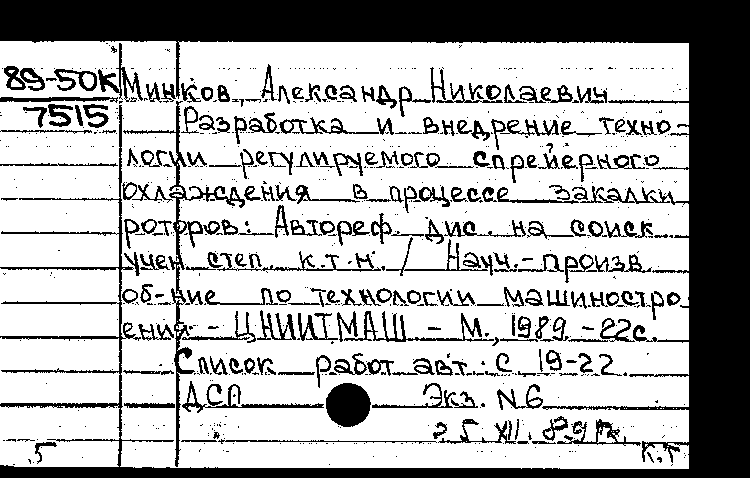 89-50К Минков, Александр Николаевич
7515 Разработка и внедрение техно-
логии регулируемого спрейерного
охлаждения в процессе закалки
роторов: Автореф. дис. на соиск
учен степ. к.т.н. / Науч.-произв.
об-ние по технологии машиностро
ения - ЦНИИТМАШ - М., 1989. - 22с.
Список работ авт.: с. 19-22.
ДСП Экз. N6
25.XII.89
5 К.Т